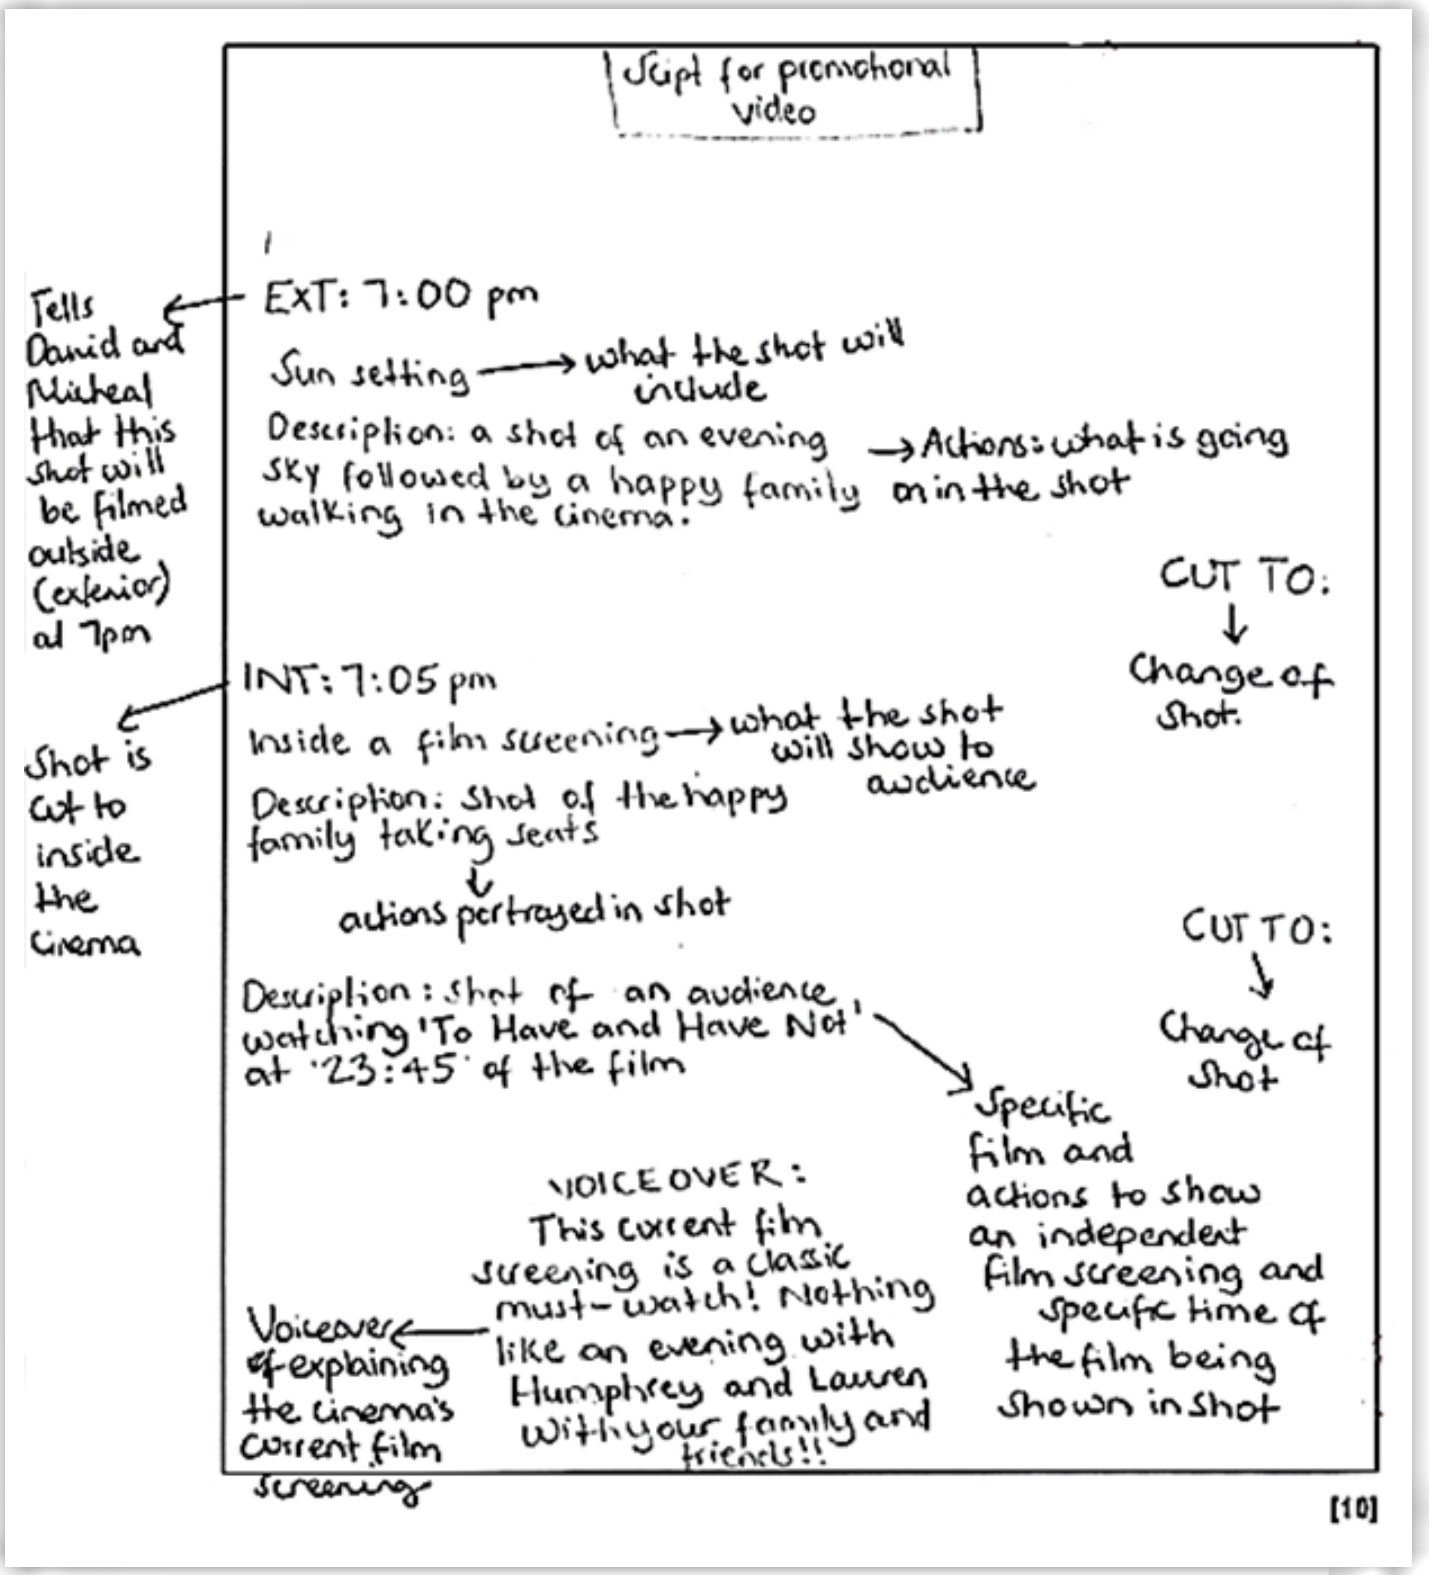 Script for promotional
video
EXT: 7:00 pm
Tells
David and
Micheal
that this
shot will
be filmed
outside
(exterior)
at 7pm
Sun setting → what the shot will
include
Description: a shot of an evening
sky followed by a happy family
walking in the cinema.
→ Actions: what is going
on in the shot
CUT TO:
↓
Change of
shot.
INT: 7:05 pm
Shot is
cut to
inside
the
cinema
Inside a film screening → what the shot
will show to
audience
Description: Shot of the happy
family taking seats
↓
actions portrayed in shot
CUT TO:
↓
Change of
shot
Description: shot of an audience
watching 'To Have and Have Not'
at '23:45' of the film
Specific
film and
actions to show
an independent
film screening and
specific time of
the film being
shown in shot
VOICEOVER:
This current film
screening is a classic
must-watch! Nothing
like an evening with
Humphrey and Lauren
with your family and
friends!!
Voiceover
explaining
the cinema's
current film
screening
[10]